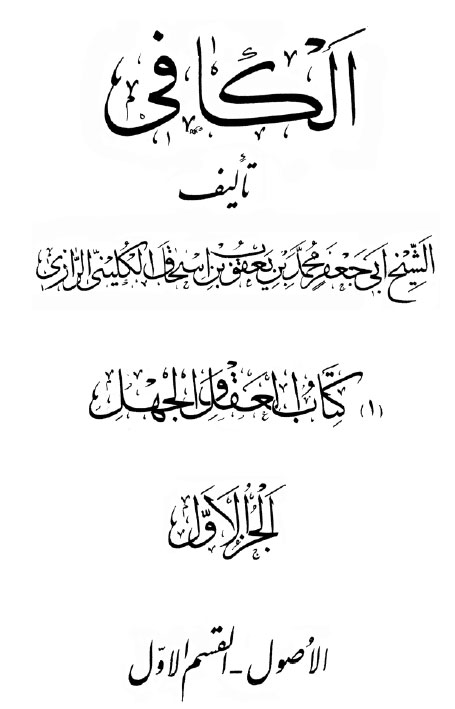 الكافي
تأليف
الشيخ أبي جعفر محمد بن يعقوب بن إسحاق الكليني الرازي
(١) كتاب العقل والجهل
الجزء الأول
الاصول - القسم الاول